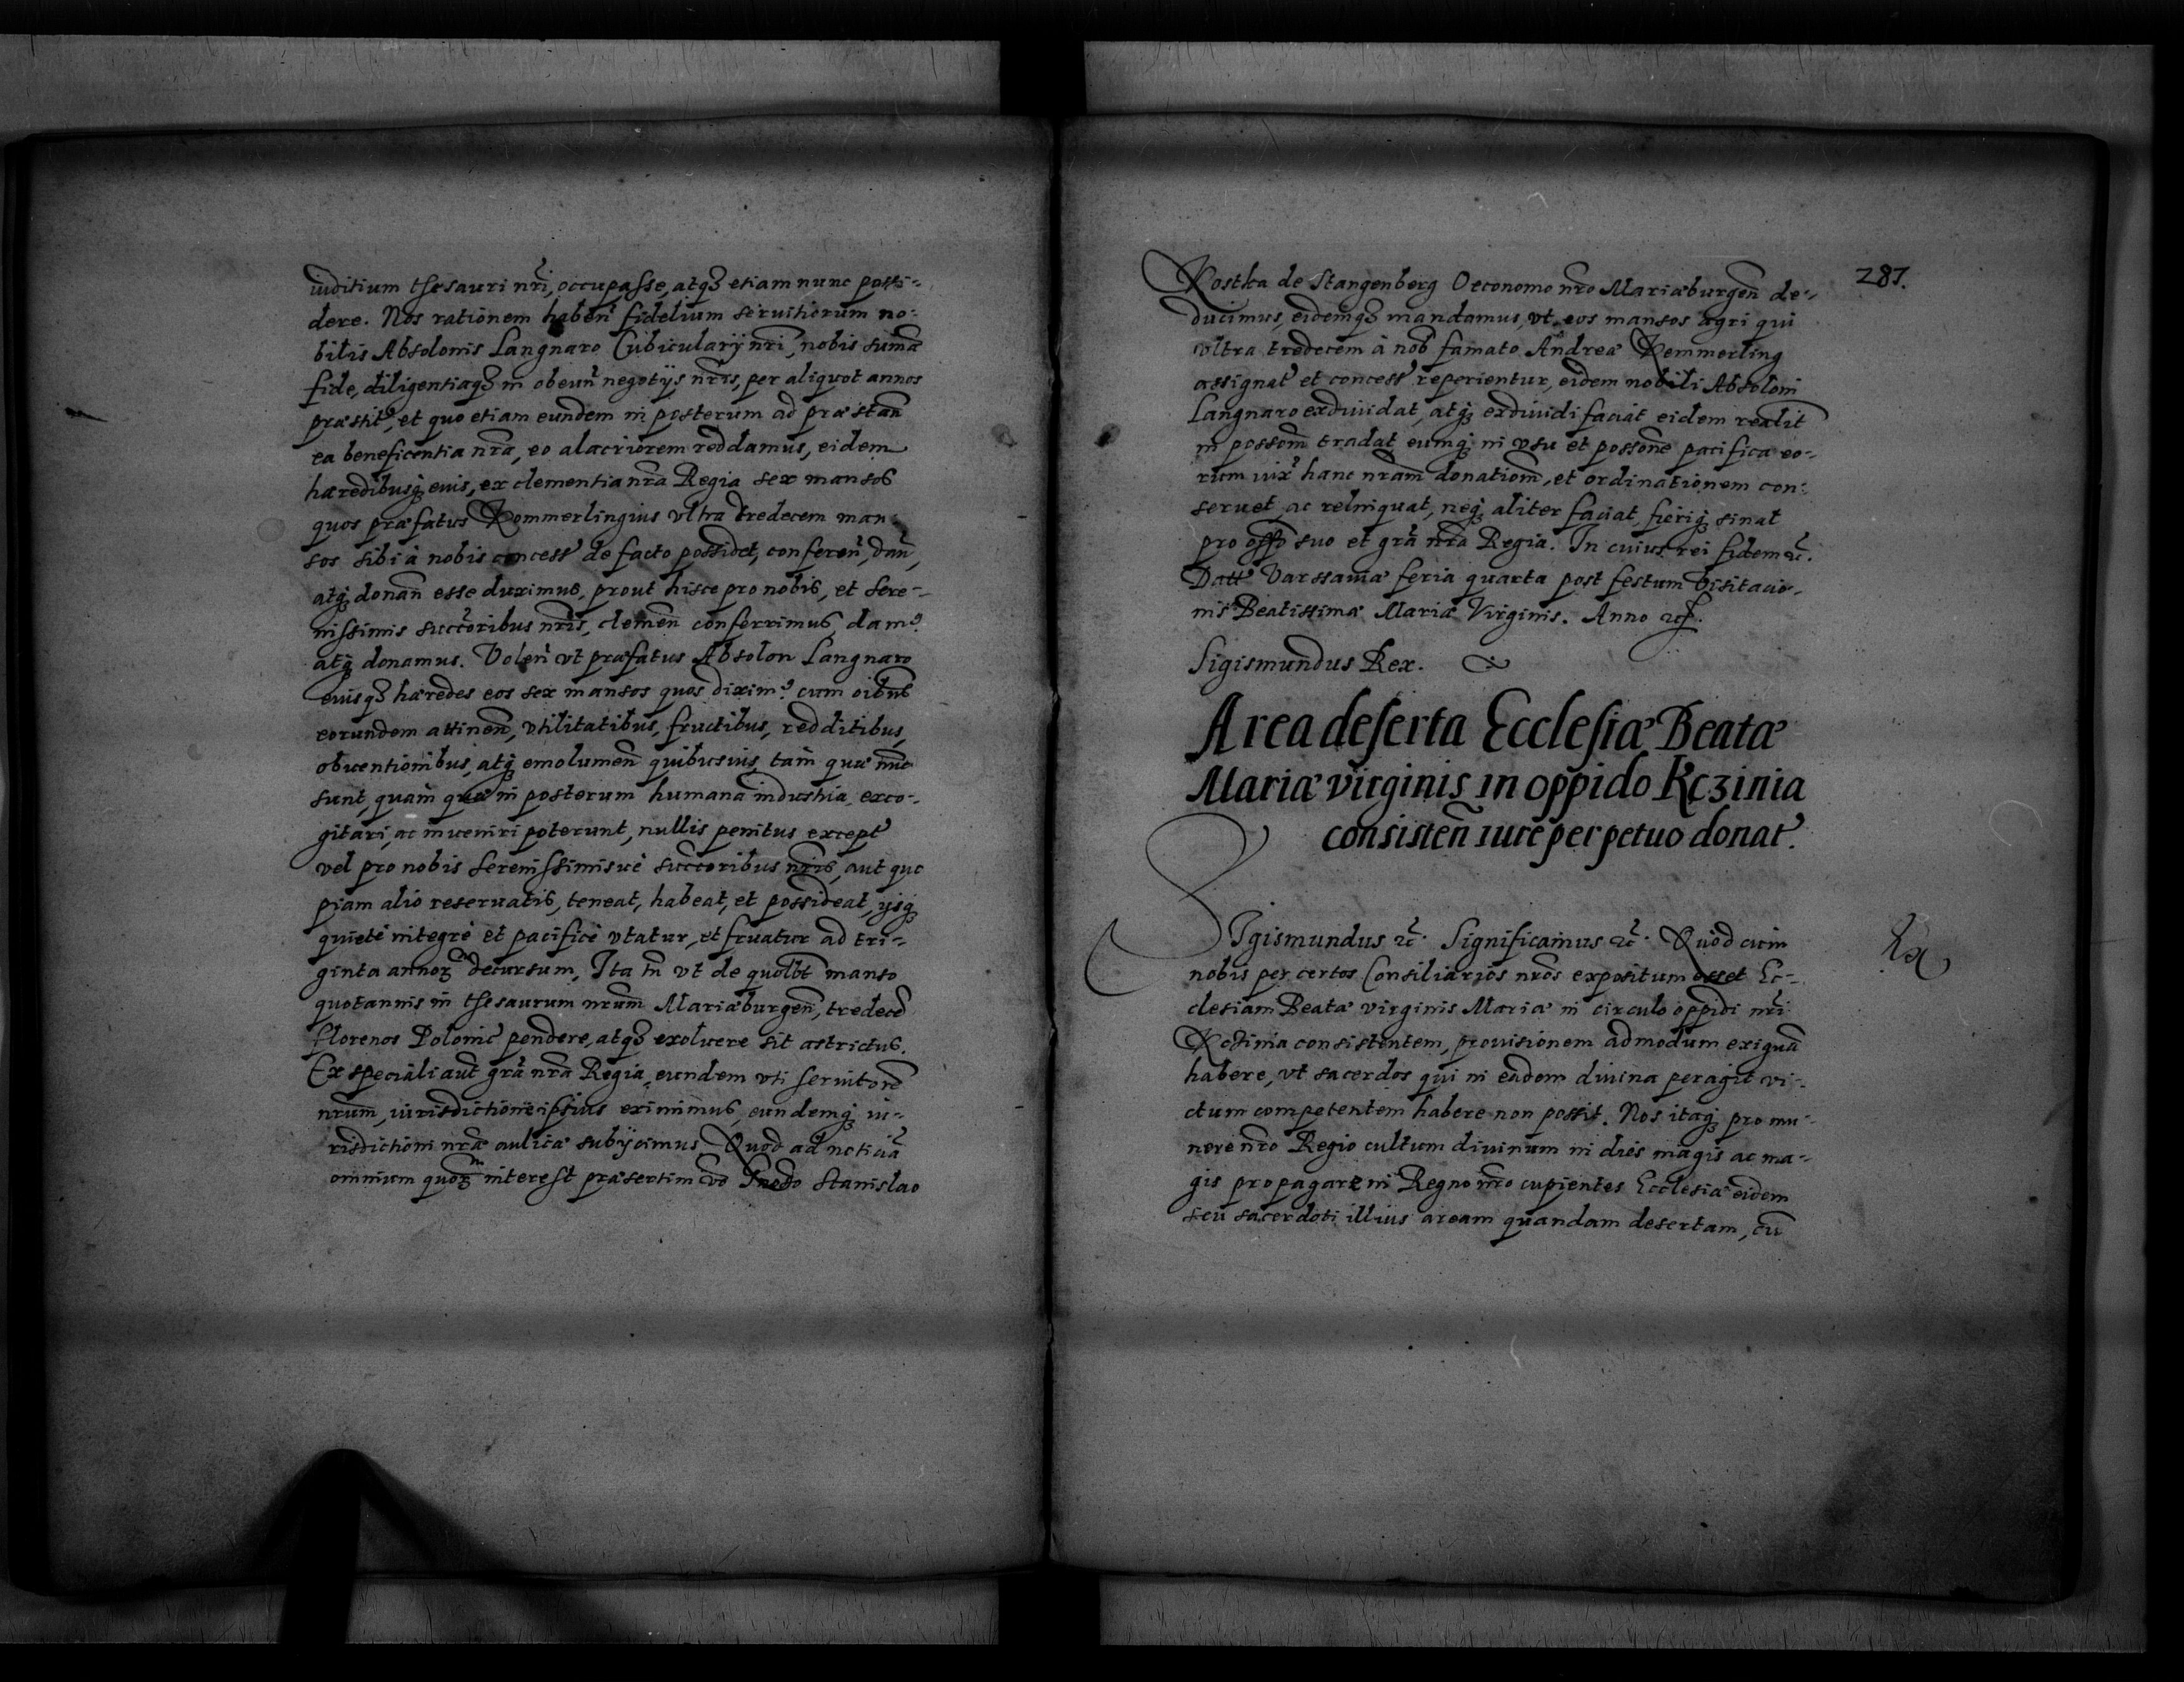 iuditium thesauri nr̃i, occupasse, atq₃ etiam nunc possi-
dere. Nos rationem haben̄ fidelium seruitiorum no-
bilis Absolonis Langnaro Cubicularij nr̃i, nobis sum̃a
fide, diligentiaq₃ in obeun̄ negotijs nr̃is, per aliquot annos
præstit⁹, et quo etiam eundem in posterum ad præstan̄
ea beneficentia nr̃a, eo alacriorem reddamus, eidem
hæredibusq₃ euis, ex clementia nr̃a Regia sex mansos
quos præfatus Kommerlingius vltra tredecem man-
sos sibi à nobis concess̃ de facto possidet, conferen̄, dan̄,
atq₃ donan̄ esse duximus, prout hisce pro nobis, et sere-
nissimis succ̃oribus nr̃is, clemen̄ conferrimus, dam⁹
atq₃ donamus. Volen̄ vt præfatus Absolon Langnaro
euisq₃ hæredes eos sex mansos quos dixim⁹ cum oib̃us
eorundem attinen̄, vtilitatibus, fructibus, redditibus,
obuentionibus, atq₃ emolumen̄ quibusuis, tam quæ nũc
sunt, quam quæ in posterum humana industria exco-
gitari, ac inueniri poterunt, nullis penitus except̃
vel pro nobis serenissimisuè succ̃oribus nr̃is, aut quo
piam alio reseruatis, teneat, habeat, et possideat, ijsq₃
quietè integrè et pacificè vtatur, et fruatur ad tri-
ginta annoꝝ decursum, Ita tñ vt de quolib̃t manso
quotannis in thesaurum nr̃um Mariæburgen̄, tredecẽ
florenos Polonic̃ pendere, atq₃ exoluere sit astrictus.
Ex speciali aut̃ grã nr̃a Regia, eundem vti seruitorẽ
nr̃um, iurisdictione ipsius eximimus, eundemq₃ iu-
risdictioni nr̃æ aulicæ subijcimus. Quod ad noticiã
omnium quoꝝ interest præsertim vo Gn̄edo Stanislao
287.
Kostka de Stangenberg Oeconomo nr̃o Mariæburgen̄ de-
ducimus, eidemq₃ mandamus, vt eos mansos agri qui
vltra tredecem à nob̃ famato Andreæ Kemmerling
assignat̃ et concess̃ reperientur, eidem nobili Absoloni
Langnaro exdiuidat, atq₃ exdiuidi faciat eidem realit̃
in possom̃ tradat, eumq₃ in vsu et possone pacifica eo-
rum iux̃ hanc nr̃am donatiom̃, et ordinationem con-
seruet ac relinquat, neq₃ aliter faciat, fieriq₃ sinat
pro off̃o suo et grã nr̃a Regia. In cuius rei fidem ⁊c̃.
Datt̃ Varssauiæ feria quarta post festum Visitacio-
nis Beatissimæ Mariæ Virginis. Anno ⁊c̃.
Sigismundus Rex.
Area deserta Ecclesiæ Beatæ
Mariæ virginis in oppido Kczinia
consisten̄ iure perpetuo donat̃.
SIgismundus ⁊c̃. Significamus ⁊c̃. Quod cum
nobis per certos Consiliarios nr̃os expositum esset Ec-
clesiam Beatæ virginis Mariæ in circulo oppidi nr̃i
Kczinia consistentem, prouisionem admodum exiguã
habere, vt sacerdos qui in eadem diuina peragit vi-
ctum competentem habere non possit. Nos itaq₃ pro mu-
nere nr̃o Regio cultum diuinum in dies magis ac ma-
gis propagare in Regno nr̃o cupientes Ecclesiæ eidem
seu sacerdoti illius aream quandam desertam, cũ